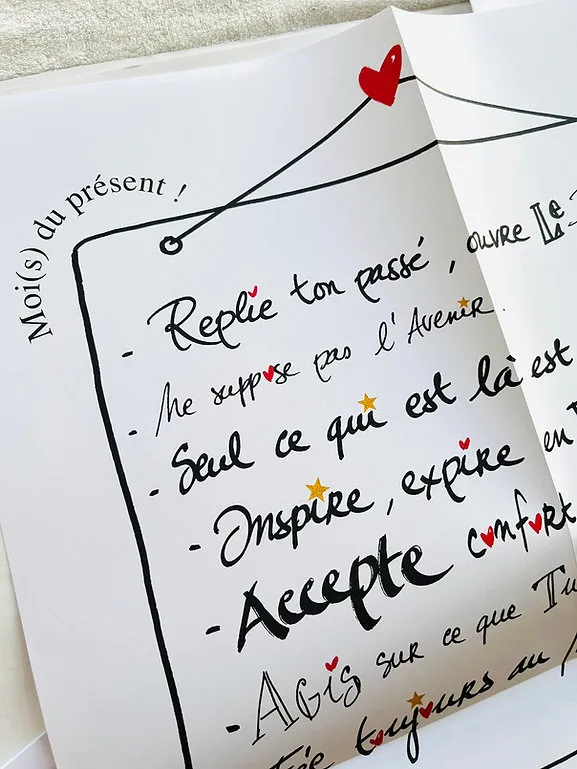 Moi(s) du présent !
- Replie ton passé, ouvre Le
- Ne suppose pas l'Avenir.
- Seul ce qui est là est
- Inspire, expire en
- Accepte confort
- Agis sur ce que Tu
toujours au